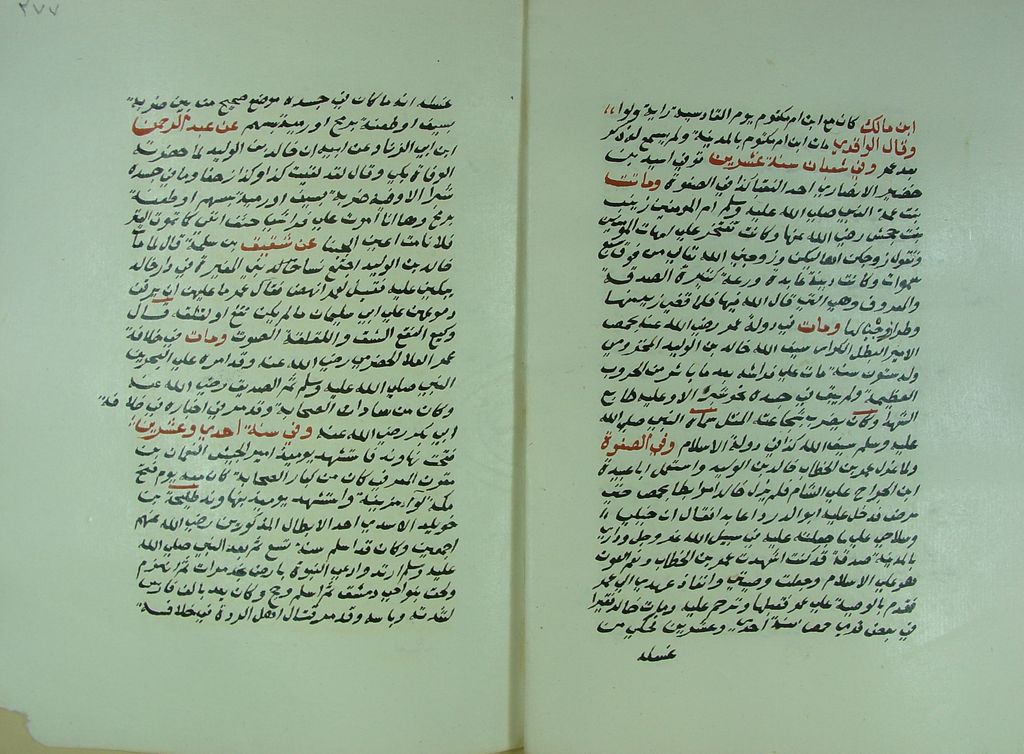 ابن مالك كان مع ابن ام مكتوم يوم القادسية راية ولواء
وقال الواقدي مات ابن ام مكتوم بالمدينة ولم يسمع له ذكر
بعد عمر وفي شعبان سنة عشرين توفي اسيد بن
حضير الانصاري احد النقبا كذا في الصفوة وماتت
بنت عمة النبي صلى الله عليه وسلم ام المومنين زينب
بنت جحش رضي الله عنها وكانت تفتخر على امهات المومنين
وتقول زوجكن اهاليكن وزوجني الله تعالى من فوق سبع
سموات وكانت دينة عابدة ورعة كثيرة الصدقة
والمعروف وهي التي قال الله فيها فلما قضى زيد منها
وطرا زوجناكها ومات في دولة عمر رضي الله عنه بحمص
الامير البطل الكرار سيف الله خالد بن الوليد المخزومي
وله ستون سنة مات على فراشه بعد ما باشر من الحروب
العظيمة ولم يبق في جسده نحو شبر الا وعليه طابع
الشهدا وكان يضرب بشجاعته المثل سماه النبي صلى الله
عليه وسلم سيف الله كذا في دولة الاسلام وفي الصفوة
ولما عزل عمر بن الخطاب خالد بن الوليد واستعمل ابا عبيدة
ابن الجراح على الشام فلم يزل خالد مرابطا بحمص حتى
مرض فدخل عليه ابو الدرداء عايدا فقال ان خيلي
وسلاحي على ما جعلته عليه في سبيل الله عز وجل وداري
بالمدينة صدقة قد كنت اشهدت عمر بن الخطاب ونعم العون
هو على الاسلام وجعلت وصيتي وانفاذ عهدي الى عمر
فقدم بالوصية على عمر فقبلها وترحم عليه ومات خالد فقبر
في بعض قرى حمص سنة احدى وعشرين فحكى من
غسله
غسله انه ما كان في جسده موضع صحيح من بين ضربة
بسيف او طعنة برمح او رمية بسهم عن عبد الرحمن
ابن ابي الزناد عن ابيه ان خالد بن الوليد لما حضرته
الوفاة بكى وقال لقد لقيت كذا وكذا زحفا وما في جسدي
شبر الا وفيه ضربة بسيف او رمية بسهم او طعنة
برمح وها انا اموت على فراشي حتف انفي كما يموت العير
فلا نامت اعين الجبنا عن شقيق بن سلمة قال لما مات
خالد بن الوليد اجتمع نسا خالد بني المغيرة في دار خالد
يبكين عليه فقيل لعمر انههن فقال عمر ما عليهن ان يرقن
دموعهن على ابي سليمان ما لم يكن نقع او لقلقة قال
وكيع النقع الشق واللقلقة الصوت ومات في خلافة
عمر العلا الحضرمي رضي الله عنه وقد امره على البحرين
النبي صلى الله عليه وسلم ثم الصديق رضي الله عنه
وكان من سادات الصحابة وقد مر في اخباره في خلافة
ابي بكر رضي الله عنه وفي سنة احدى وعشرين
فتحت نهاوند فاستشهد يوميذ امير الجيش النعمان بن
مقرن المزني كان من كبار الصحابة كان معه يوم فتح
مكة لواء مزينة واستشهد يوميذ بنهاوند طليحة بن
خويلد الاسدي احد الابطال المذكورين رضي الله عنهم
اجمعين وكان قد اسلم سنة تسع ثم بعد النبي صلى الله
عليه وسلم ارتد وادعى النبوة بارض نجد مرات ثم انهزم
ولحق بنواحي دمشق ثم اسلم وحج وكان يعد بالف فارس
لشدته وباسه وقد مر قتال اهل الردة في خلافة
٢٧٧